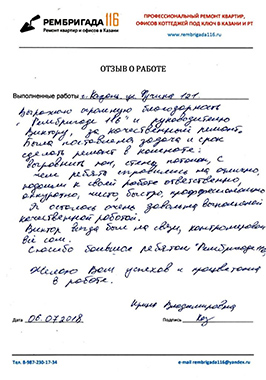 РЕМБРИГАДА116
Ремонт квартир и офисов в Казани
ПРОФЕССИОНАЛЬНЫЙ РЕМОНТ КВАРТИР,
ОФИСОВ КОТТЕДЖЕЙ ПОД КЛЮЧ В КАЗАНИ И РТ
www.rembrigada116.ru
ОТЗЫВ О РАБОТЕ
Выполненные работы г. Казань ул 121
Выражаю огромную благодарность
"Рембригаде 116" и руководителю
Виктору, за качественный ремонт.
Была поставлена задача и срок
сделать ремонт в комнате:
Выровнять пол, стены, потолок, с
чем ребята справились на отлично,
подошли к своей работе ответственно,
аккуратно, чисто, быстро, профессионально
Я осталась очень довольна выполненной
качественной работой.
Виктор всегда был на связи, контролировал
всё сам.
Спасибо большое ребятам "Рембригада 116"
Желаю Вам успехов и процветания
в работе.
Ирина Владимировна
Дата 06.07.2018.
Подпись
Тел. 8-987-230-17-34
e-mail rembrigada116@yandex.ru